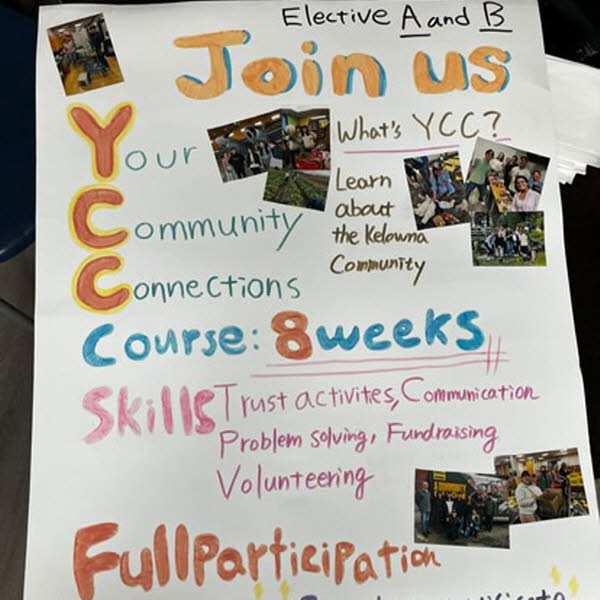 Elective A and B
Join us
Your
Community
Connections
What's YCC?
Learn
about
the Kelowna
Community
Course: 8 weeks
Skills Trust activites, Communication
Problem solving, Fundraising
Volunteering
Full Participation